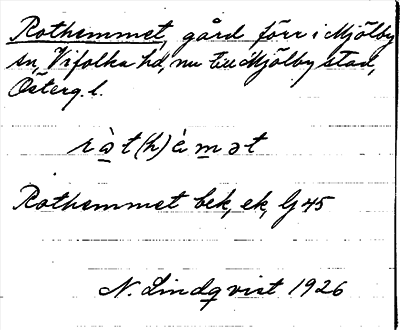 Rothemmet, gård förr i Mjölby
sn, Vifolka hd, nu till Mjölby stad,
Österg. l.
ràt(h)èmət
Rothemmet bek, ek, Gj 45
N. Lindqvist 1926